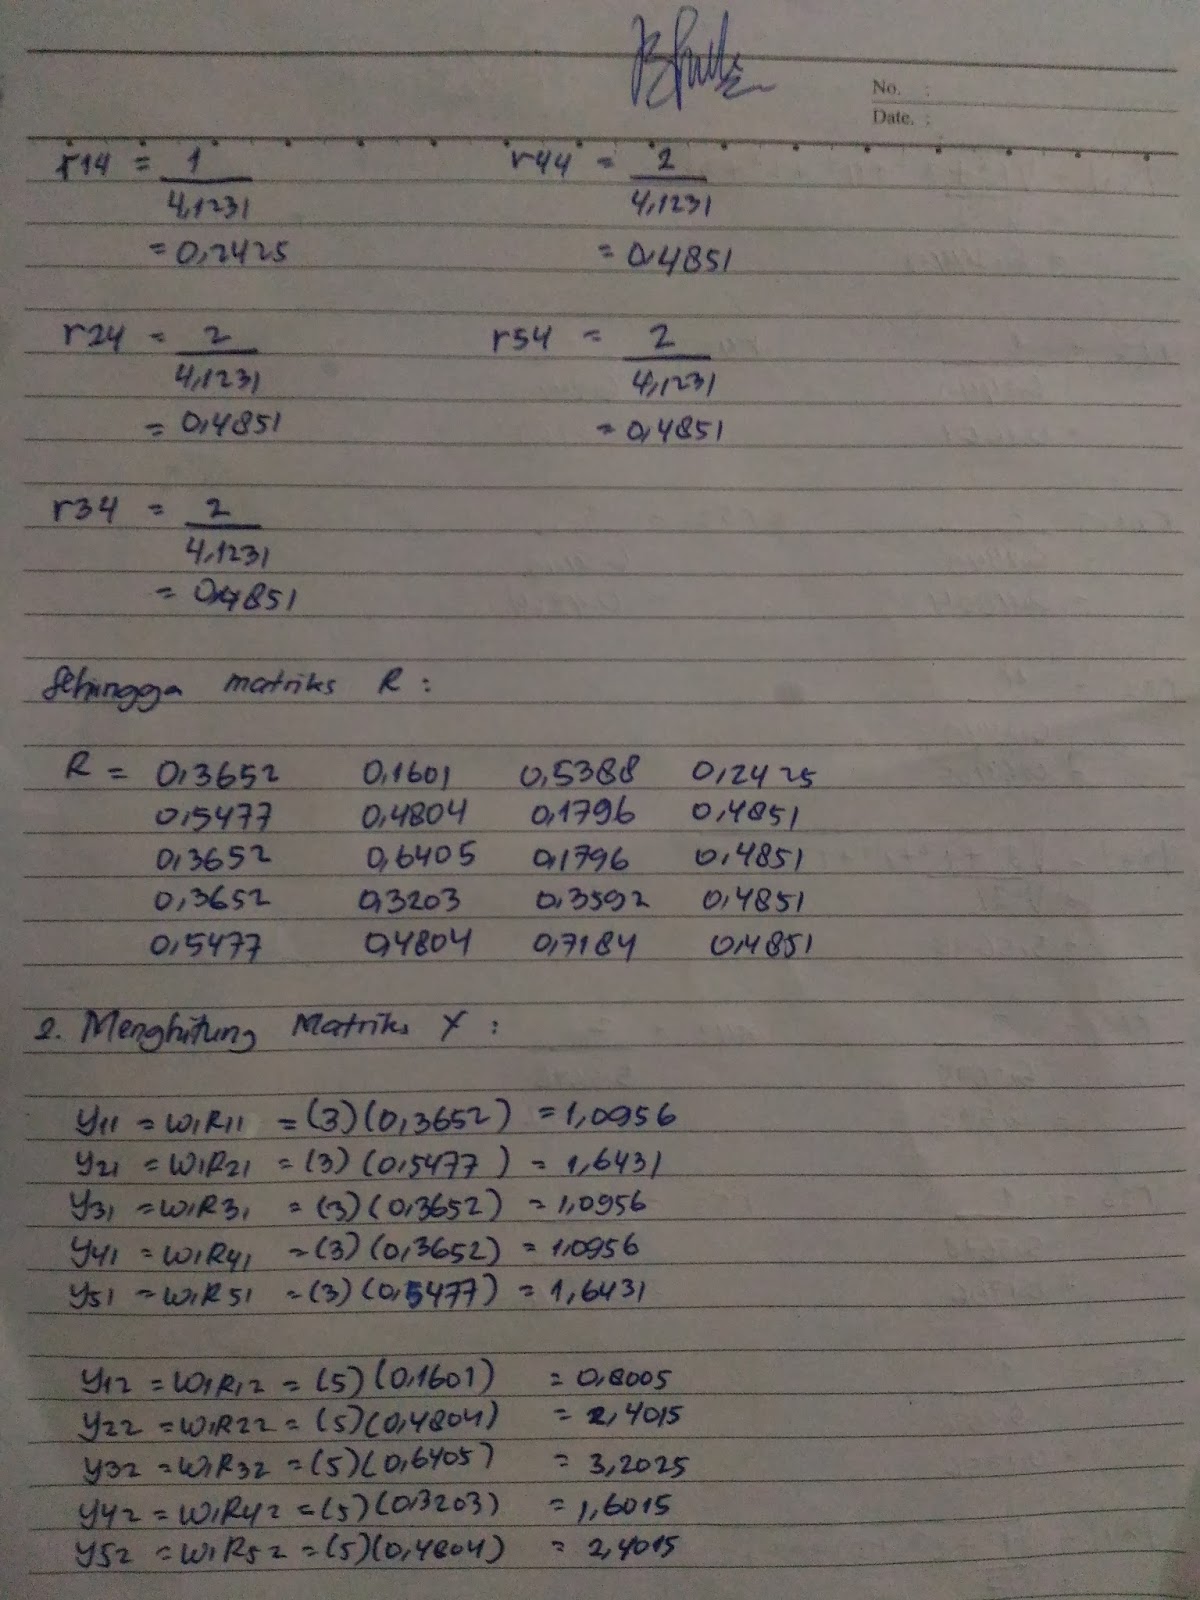 No. :
Date. :
r14 = 1
4,1231
= 0,2425
r44 = 2
4,1231
= 0,4851
r24 = 2
4,1231
= 0,4851
r54 = 2
4,1231
= 0,4851
r34 = 2
4,1231
= 0,4851
Sehingga matriks R :
R = 0,3652 0,1601 0,5388 0,2425
0,5477 0,4804 0,1796 0,4851
0,3652 0,6405 0,1796 0,4851
0,3652 0,3203 0,3592 0,4851
0,5477 0,4804 0,7184 0,4851
2. Menghitung Matriks Y :
Y11 = W1R11 = (3)(0,3652) = 1,0956
Y21 = W1R21 = (3)(0,5477) = 1,6431
Y31 = W1R31 = (3)(0,3652) = 1,0956
Y41 = W1R41 = (3)(0,3652) = 1,0956
Y51 = W1R51 = (3)(0,5477) = 1,6431
Y12 = W1R12 = (5)(0,1601) = 0,8005
Y22 = W1R22 = (5)(0,4804) = 2,4015
Y32 = W1R32 = (5)(0,6405) = 3,2025
Y42 = W1R42 = (5)(0,3203) = 1,6015
Y52 = W1R52 = (5)(0,4804) = 2,4015